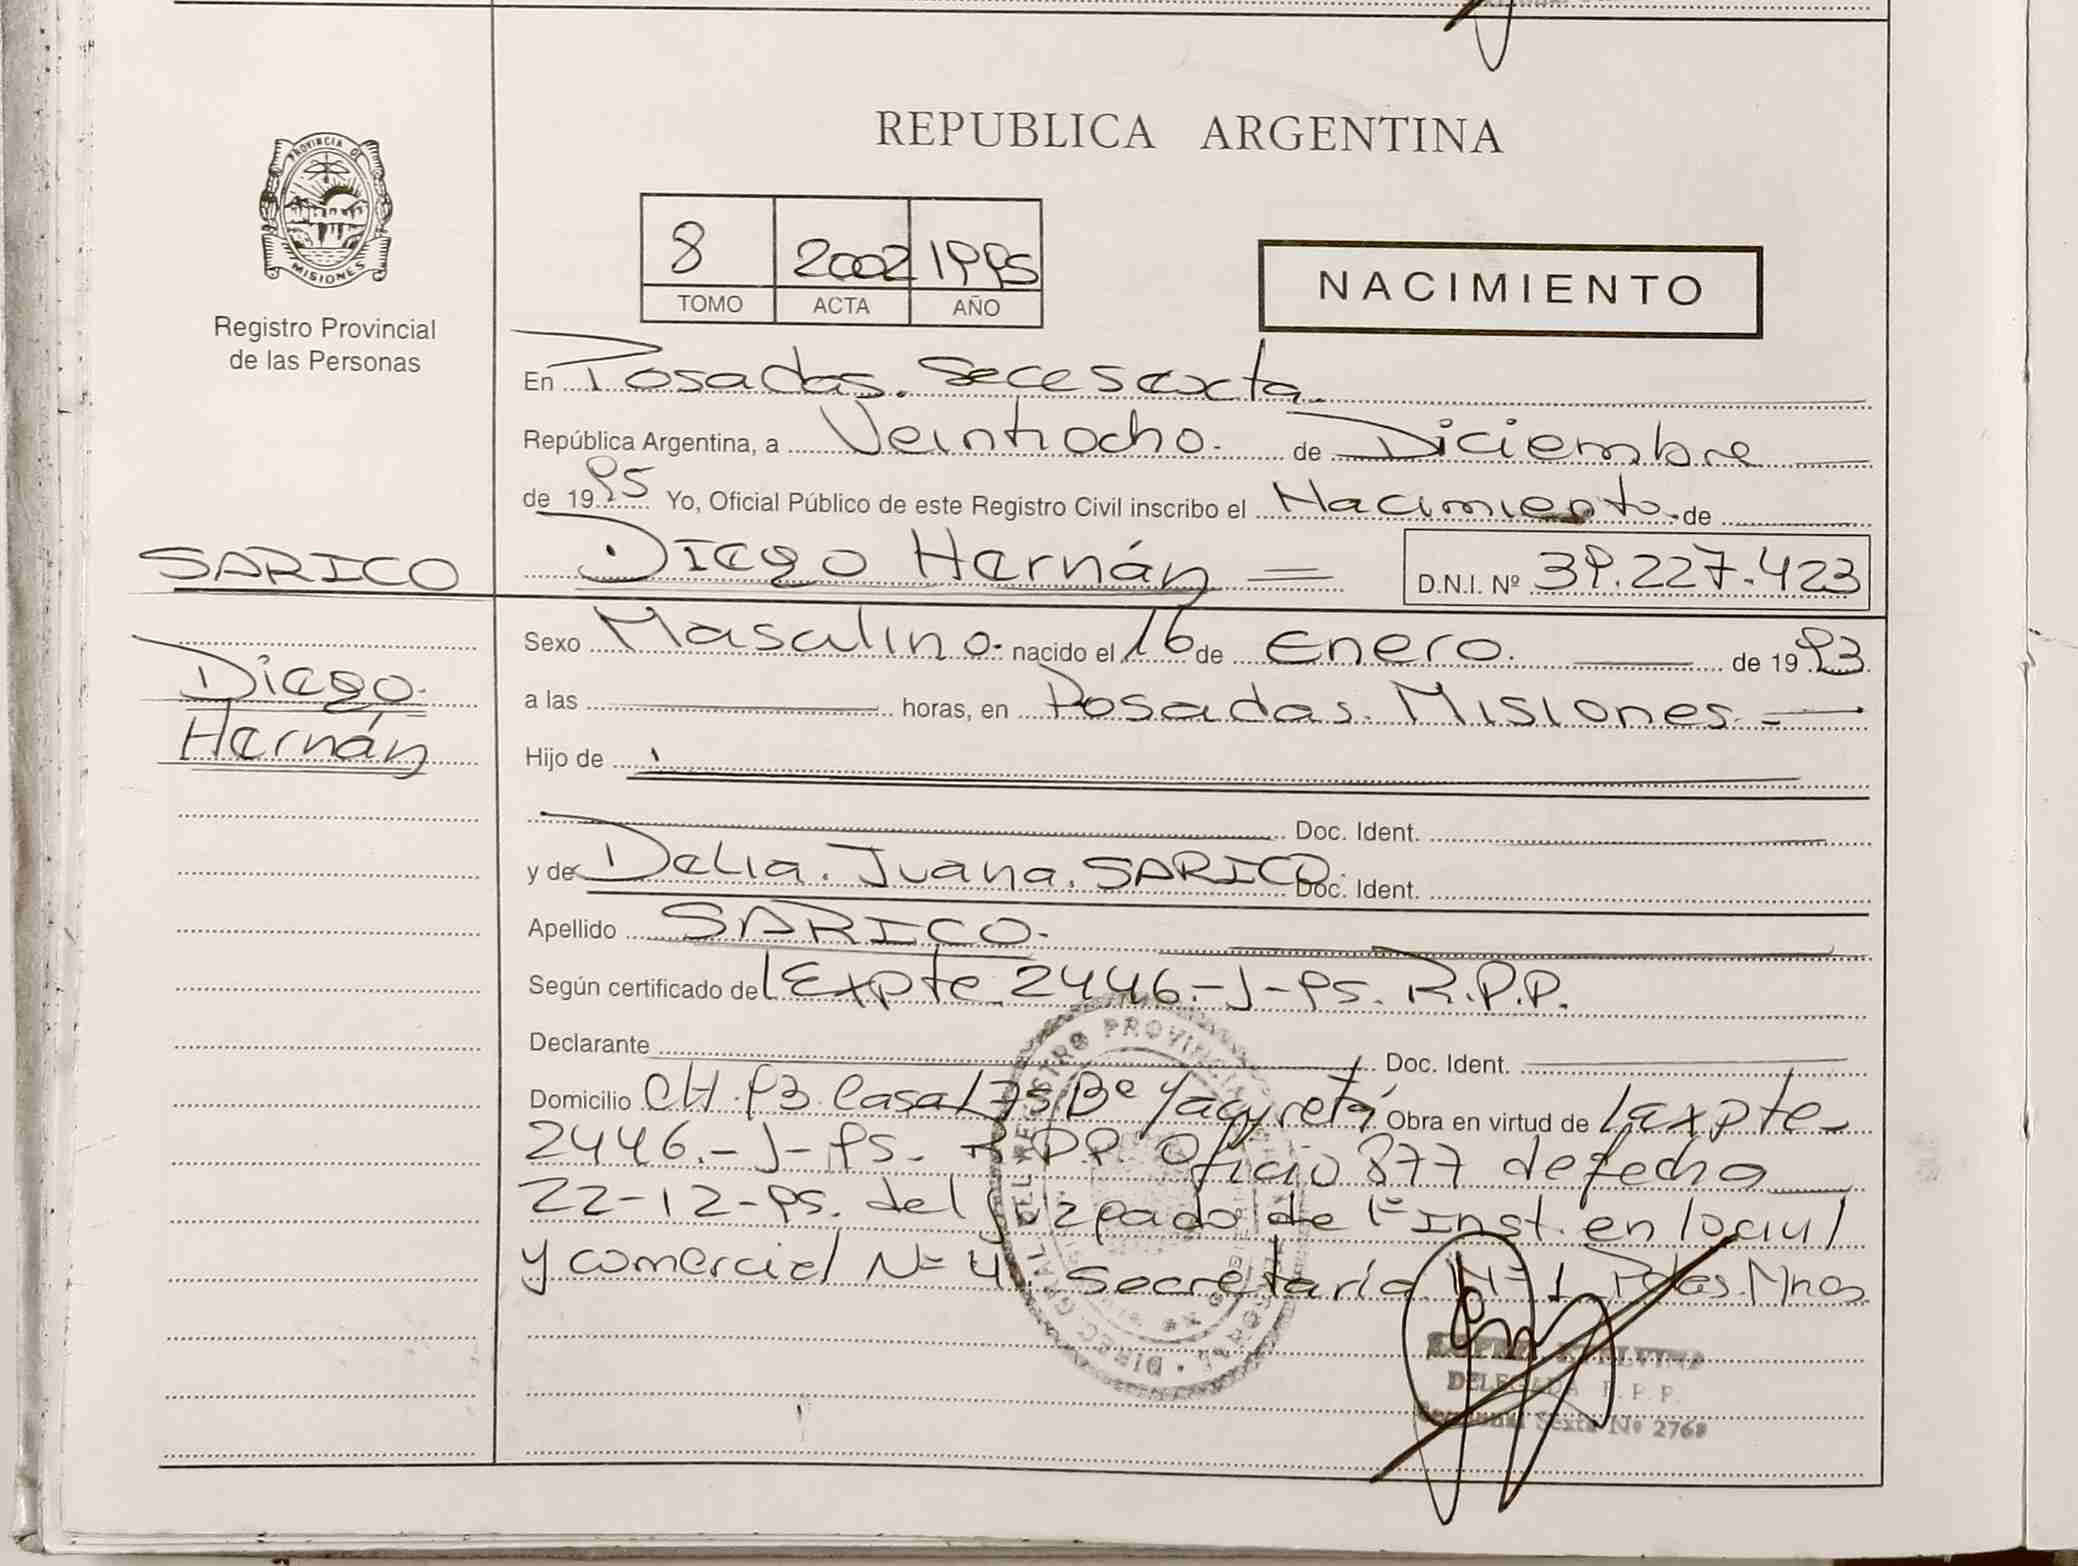 REPUBLICA ARGENTINA
PROVINCIA DE
MISIONES
Registro Provincial
de las Personas
8 2002 1995
TOMO ACTA AÑO
NACIMIENTO
En Posadas. Secc sexta.
República Argentina, a Veintiocho. de Diciembre
de 1995 Yo, Oficial Público de este Registro Civil inscribo el Nacimiento. de
SARICO
Diego Hernán
D.N.I. Nº 39.227.423
Diego
Hernán
Sexo Masculino. nacido el 16 de Enero. de 1993
a las horas, en Posadas. Misiones.
Hijo de
Doc. Ident.
y de Delia. Juana. SARICO. Doc. Ident.
Apellido SARICO.
Según certificado de Expte 2446.-J-95. R.P.P.
Declarante Doc. Ident.
Domicilio CH. 93. Casa 175 Bº Yacyretá Obra en virtud de Expte
2446.-J-95. R.P.P. Oficio 877 de fecha
22-12-95. del Juzgado de 1ª Inst. en lo civil
y comercial Nº 4. Secretaría Nº 1 Pdas. Mnes
DELEGADA R.P.P.
Sexta Nº 2768
DIREC. GRAL DEL REGISTRO PROVINCIAL DE